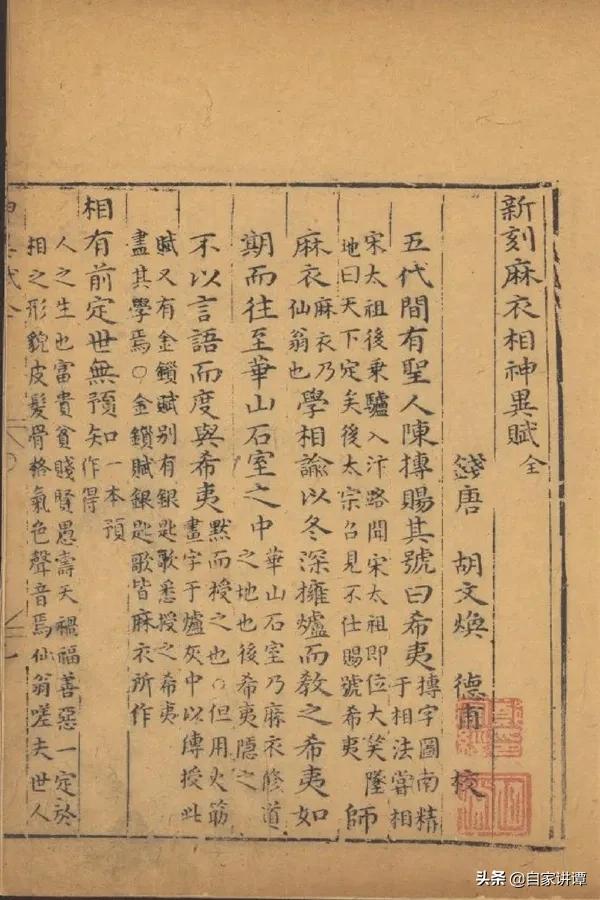 新刻麻衣相神異賦全
錢唐 胡文煥 德甫 校
五代間有聖人陳摶賜其號曰希夷
摶字圖南精
于相法嘗相
宋太祖後乗驢入汴略聞宋太祖即位大笑墜
地曰天下定矣後太宗召見不仕賜號希夷
師
麻衣
麻衣乃
仙翁也
學相諭以冬深擁爐而教之希夷如
期而往至華山石室之中
華山石室乃麻衣修道
之地也後希夷隱之
不以言語而度與希夷
默而授之也○但用火筯
畫字于爐灰中以傳授此
賦又有金鎖賦別有銀匙歌悉授之希夷
盡其學焉○金鎖賦銀匙歌皆麻衣所作
相有前定世無預知
一本預
作得
人之生也富貴貧賤賢愚壽夭禍福善惡一定於
相之形貌皮髮骨格氣色聲音焉仙翁嗟夫世人
头条 @自家讲谭